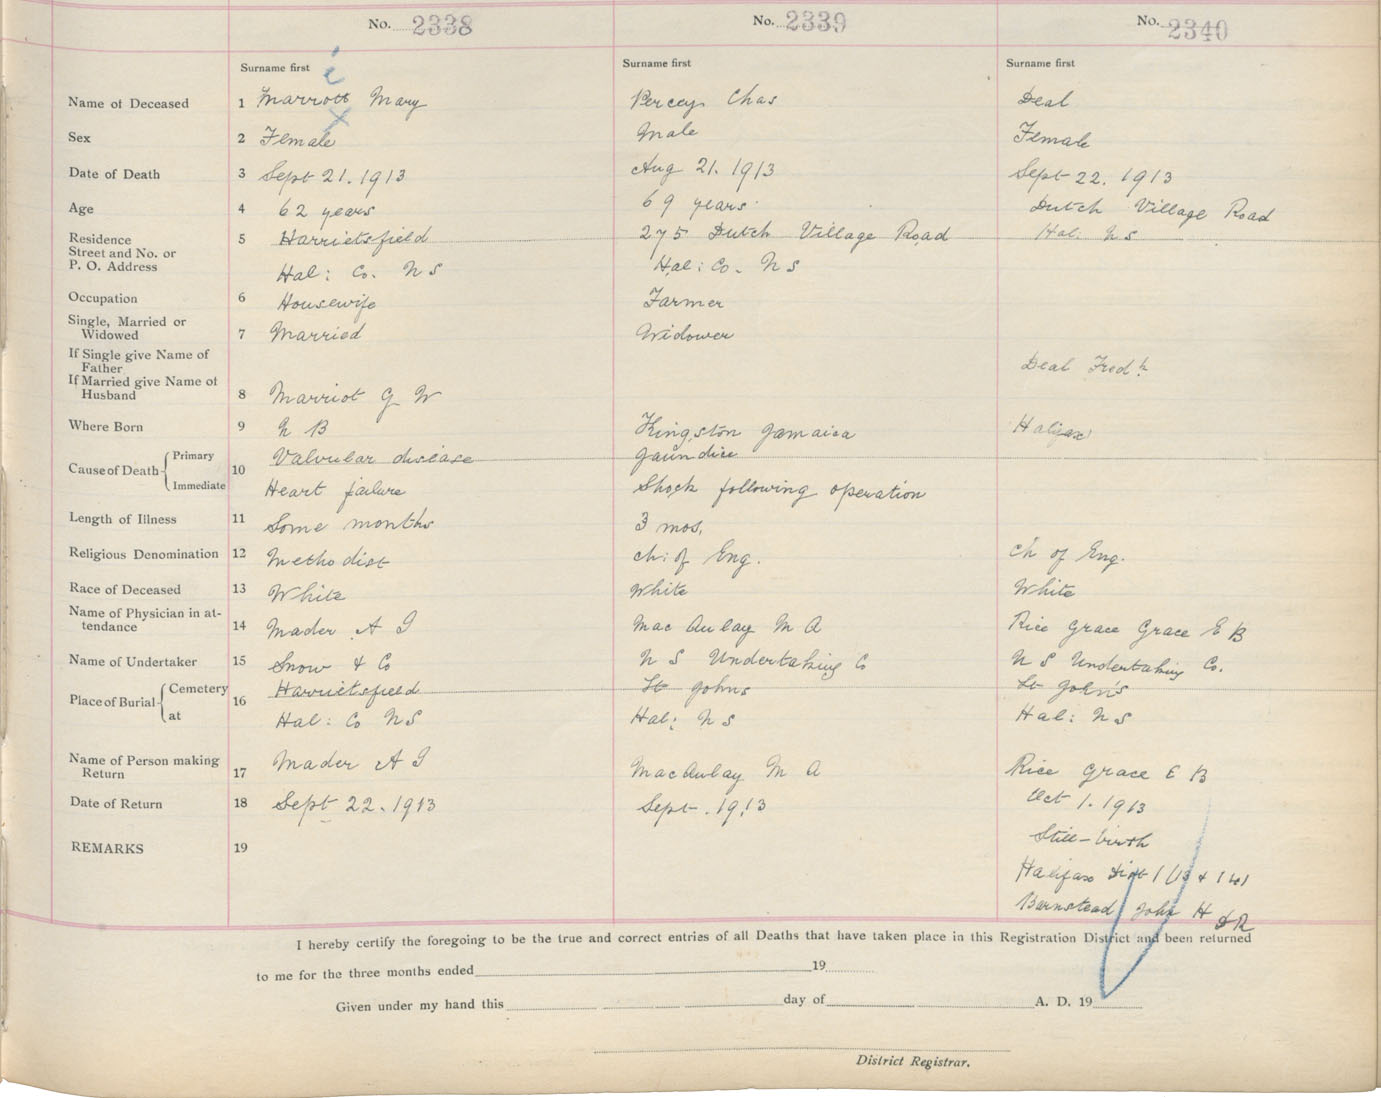 No. 2338 No. 2339 No. 2340
Surname first Surname first Surname first
i
Name of Deceased 1 Marrott Mary Percey Chas Deal
x
Sex 2 Female Male Female
Date of Death 3 Sept 21. 1913 Aug 21. 1913 Sept 22. 1913
Age 4 62 years 69 years Dutch Village Road
Residence 5 Harrietsfield 275 Dutch Village Road Hal: N S
Street and No. or
P. O. Address Hal: Co. N S Hal: Co. N S
Occupation 6 Housewife Farmer
Single, Married or
Widowed 7 Married Widower
If Single give Name of
Father Deal Fredk
If Married give Name of
Husband 8 Marriot G W
Where Born 9 N B Kingston Jamaica Halifax
Cause of Death Primary 10 Valvular disease Jaundice
Immediate Heart failure Shock following operation
Length of Illness 11 Some months 3 mos.
Religious Denomination 12 Methodist Ch: of Eng. Ch of Eng.
Race of Deceased 13 White White White
Name of Physician in at-
tendance 14 Mader A I Mac Aulay M A Rice Grace Grace E B
Name of Undertaker 15 Snow & Co N S Undertaking Co N S Undertaking Co.
Place of Burial Cemetery 16 Harrietsfield St Johns St John's
at Hal: Co N S Hal: N S Hal: N S
Name of Person making
Return 17 Mader A I MacAulay M A Rice Grace E B
Date of Return 18 Sept 22. 1913 Sept. 1913 Oct 1. 1913
REMARKS 19 Still-birth
Halifax Dist
Barnstead John H DR
I hereby certify the foregoing to be the true and correct entries of all Deaths that have taken place in this Registration District and been returned
to me for the three months ended 19
Given under my hand this day of A. D. 19
District Registrar.